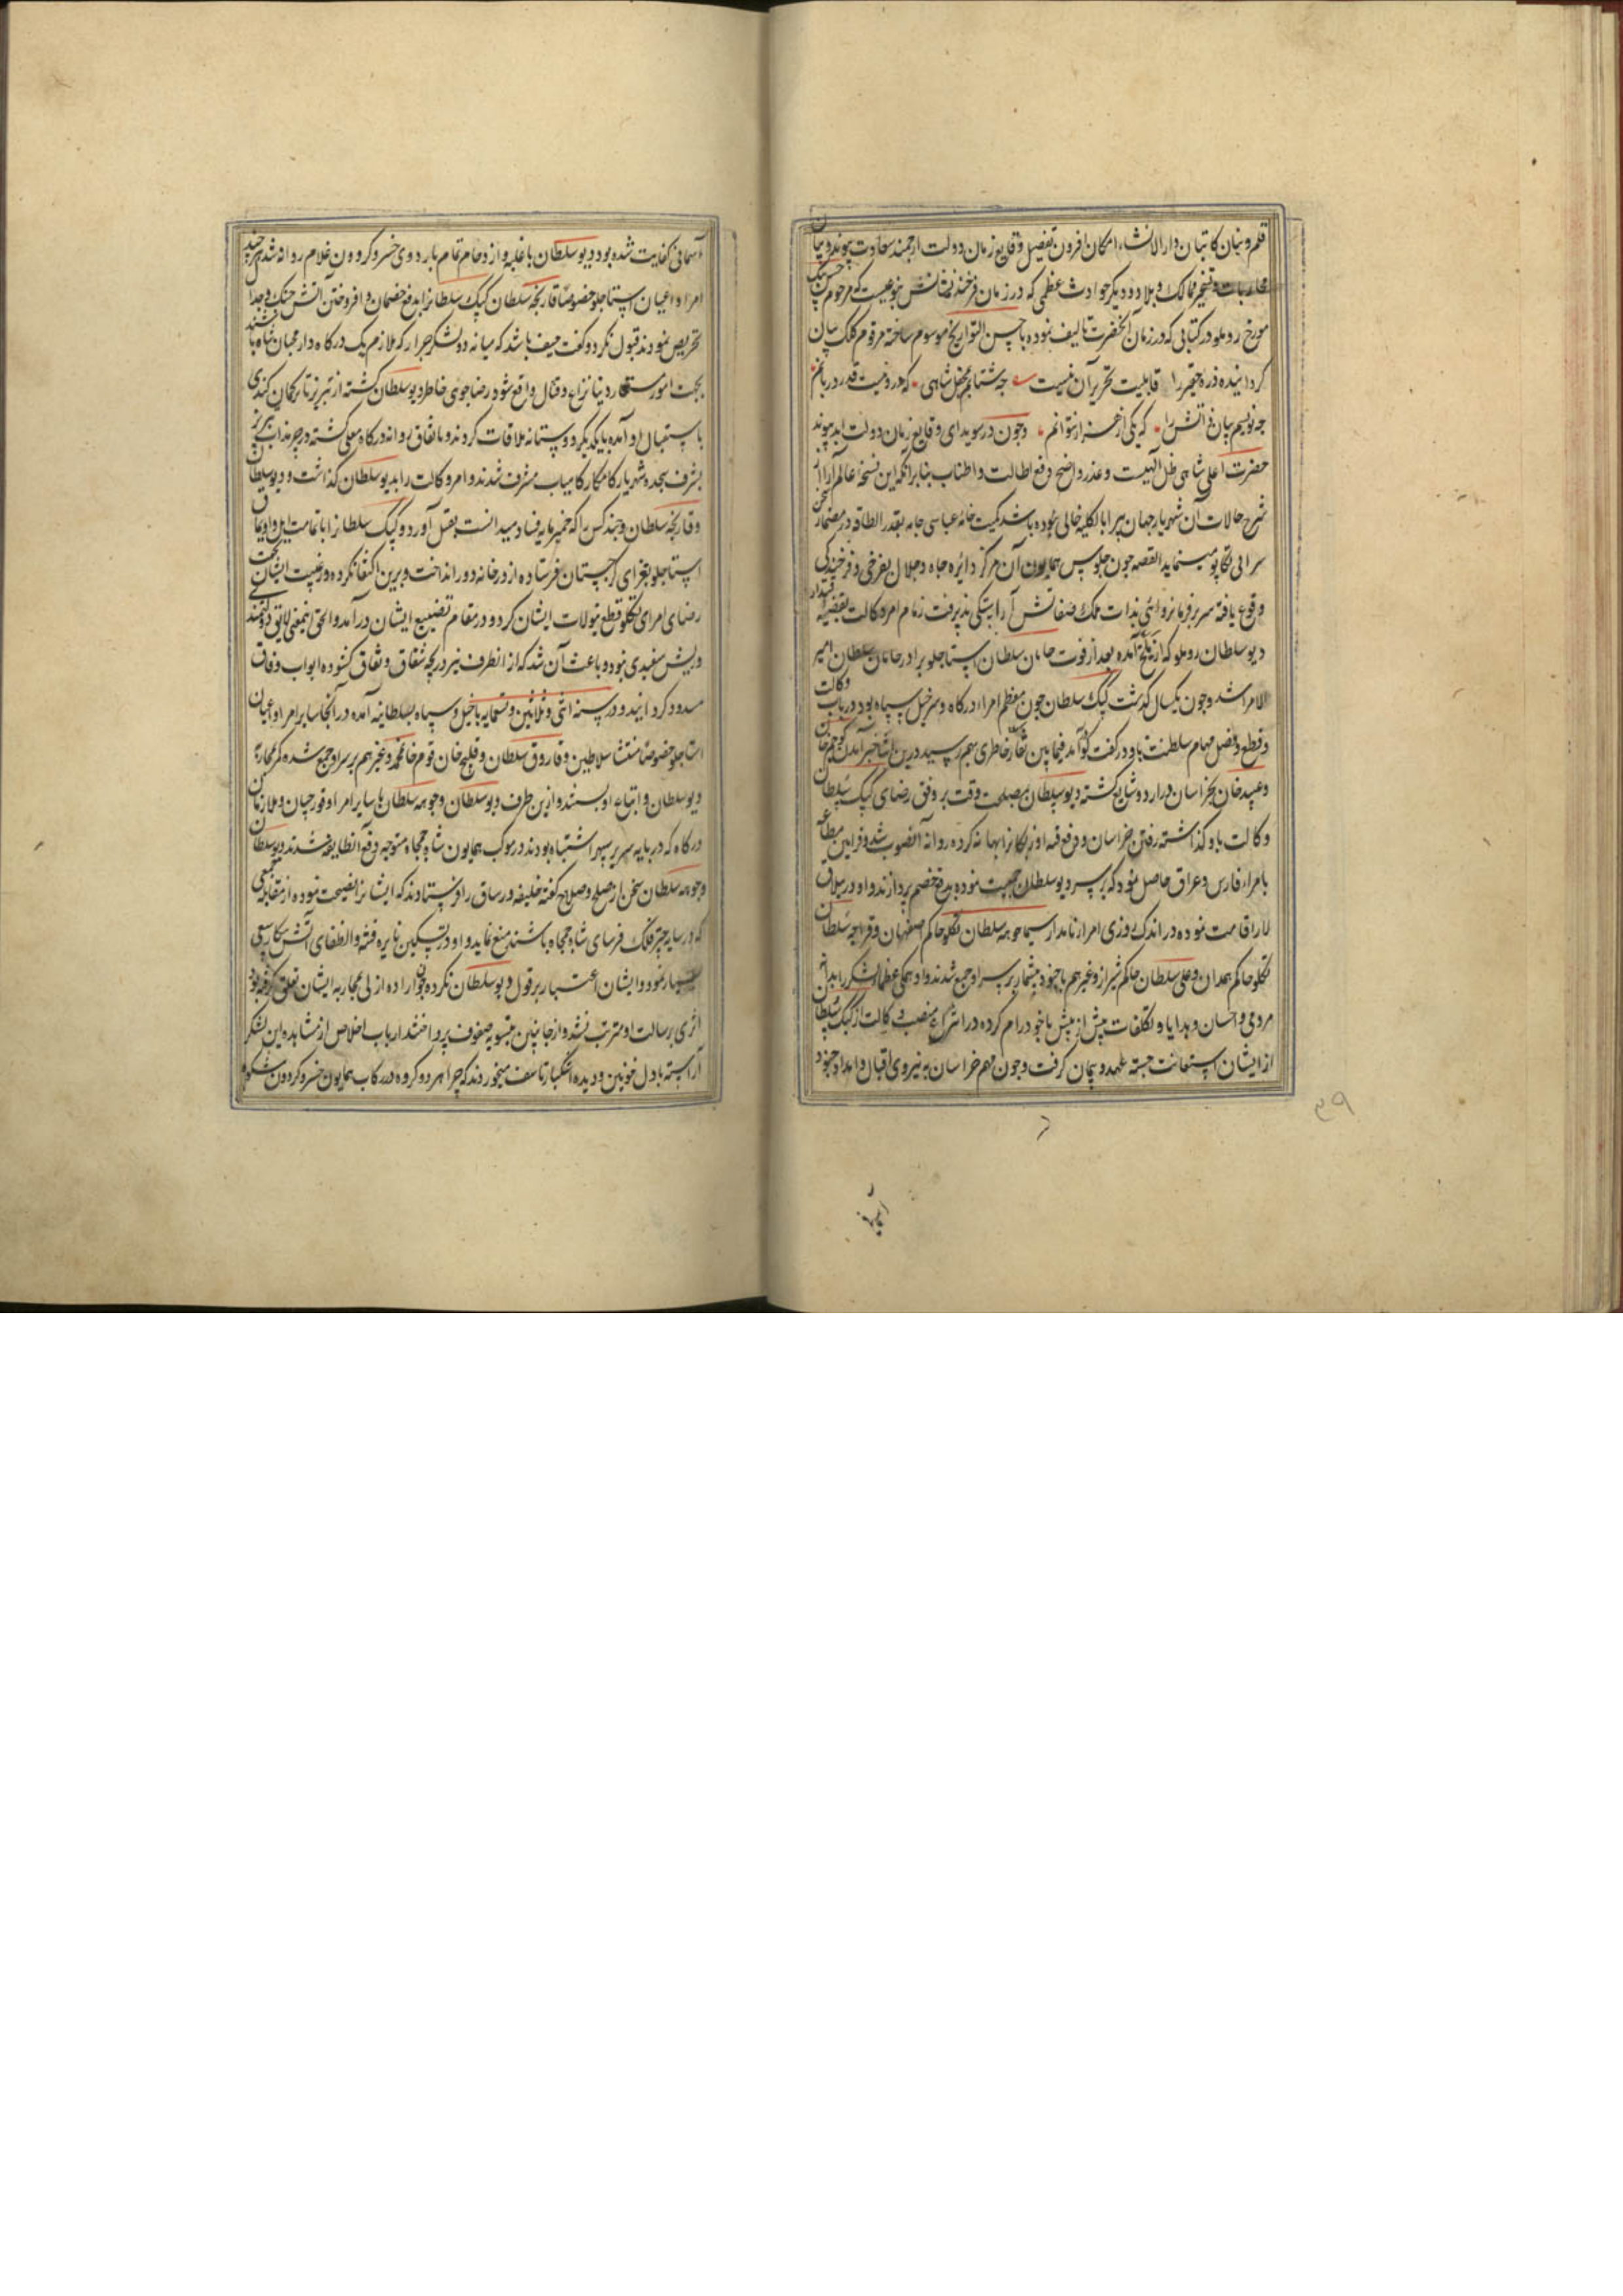 قلم و بنان کاتبان دار الانشاء امکان افزون تفصیل وقایع زمان دولت ارجمند سعادت پیوند و بیان
محاربات و تسخیر ممالک و بلاد و دیگر حوادث عظمی که در زمان فرخنده نشانش بنوعیست که مرحوم حسن بیک
مورخ روملو در کتابی که در زمان آنحضرت تالیف نموده باحسن التواریخ موسوم ساخته مرقوم کلک بیان
کردانیده ذره حقیر را قابلیت تحریر آن نیست چه شتابم بمحفل شاهی که درو نیست قدر دربانم
چه نویسم بیان آتش را که یکی از هزار نتوانم و چون در سویدای وقایع زمان دولت ابد پیوند
حضرت اعلی شاهی ظل الهیست و عذر واضح دفع اطالت و اطناب بنابر آنکه این نسخه عالم آرا از
شرح حالات آن شهریار جهان پیرا بالکلیه خالی نبوده باشد کمیت خانه عباسی جامه بقدر الطاقه در مضمار سخن
سرائی تکاپو مینماید القصه چون جلوس همایون آن مرکز دائره جاه و جلال بفرخی و فرخندکی
وقوع یافته سریر فرمانروائی بذات ملک صفاتش آراستکی پذیرفت زمام امر وکالت بقبضه اقتدار
دیو سلطان روملو که از بلخ آمده بعد از فوت جایان سلطان استاجلو برادر جایان سلطان امیر
الامرا شد و چون یکسال گذشت کپک سلطان چون معظم امراء درگاه و سرخیل سپاه بود در باب وکالت
و قطع و فصل مهام سلطنت باو در گفت گو آمد فیمابین نقار خاطری بهم رسید درین اثنا خبر آمدن کوچم خان
و عبید خان بخراسان در اردو شایع گشته دیو سلطان بمصلحت وقت بر وفق رضای کپک سلطان
وکالت باو گذاشته رفتن خراسان و رفع فتنه اوزبکانرا بهانه کرده روانه آنصوب شد و فرامین مطاعه
بامراء فارس و عراق حاصل نمود که بر سر دیو سلطان جمعیت نموده بدفع خصم پردازند و او در ییلاق
لار اقامت نموده در اندک روزی امراء نامدار سیما چوهه سلطان تکلو حاکم صفهان و قراجه سلطان
تکلو حاکم همدان و علی سلطان حاکم شیراز و غیرهم با جنود بیشمار بر سر او جمع شدند و او همکی عظماء لشکر را بدام
مردمی و احسان و هدایا و تکلفات پیش از پیش با خود رام کرده در انتزاع منصب وکالت از کپک سلطان
از ایشان استعانت جسته عهد و پیمان گرفت و چون مهم خراسان به نیروی اقبال و امداد جنود
آسمانی
۳۹
آسمانی کفایت شده بود دیو سلطان با غلبه و ازدحام تمام باردوی خسرو گردون غلام روانه شد هر چند
امراء و اعیان استاجلو خصوصا قارنجه سلطان کپک سلطانرا بدفع خصمان و افروختن آتش جنک و جدال
تحریص نمودند قبول نکرد و گفت حیف باشد که میانه دو لشکر جرار که ملازم یک درگاه و از محبان شاه باشند
بجهت امور مستعار دنیا نزاع و قتال واقع شود رضاجوی خاطر دیو سلطان گشته از تبریز تا ترکمان کندی
باستقبال او آمده با یکدیگر دوستانه ملاقات کردند و باتفاق روانه درگاه معلی گشته در چرنداب تبریز
بشرف سجده شهریار کامکار کامیاب مشرف شدند و امر وکالت را بدیو سلطان گذاشت و دیو سلطان
و قارنجه سلطان و چند کس را که خمیر مایه فساد میدانست بقتل آورد و کپک سلطانرا با تمامت ایل و اویماق
استاجلو بغزای گرجستان فرستاده از درخانه دور انداخت و برین اکتفا نکرده در غیبت ایشان بجهت
رضای امرای تکلو قطع تیولات ایشان کرد و در مقام تضییع ایشان درآمد و الحق اینمعنی لایق دولتمندی
و ریش سفیدی نبود و باعث آن شد که از انطرف نیز دریچه شقاق و نفاق گشوده ابواب وفاق
مسدود گردانیدند و در سنه اثنی و ثلاثین و تسعمایه با خیل و سپاه بسلطانیه آمده در آنجا سایر امراء و اعیان
استاجلو خصوصا منتشا سلاطین و فاروق سلطان و قلیج خان قوم خان محمد و غیرهم بر سر او جمع شده کمر بمحاربه
دیو سلطان و اتباع او بستند و ازین طرف دیو سلطان و چوهه سلطان با سایر امراء و قورچیان و ملازمان
درگاه که در پایه سریر سپهر اشتباه بودند در موکب همایون شاه جمجاه متوجه دفع آنطایفه شدند دیو سلطان
و چوهه سلطان سخن از صلح و صلاح گفته خلیفه ورساق را فرستادند که ایشانرا نصیحت نموده از مقابله جمعی
که در سایه چتر فلک فرسای شاه جمجاه باشند منع نماید و او در تسکین نایره فتنه و انطفای آتش پیکار سعی
بسیار نمود و ایشان اعتبار بر قول دیو سلطان نکرده چون اراده ازلی بمحاربه ایشان تعلق گرفته بود
اثری برسالت او مترتب نشد و از جانبین بتسویه صفوف پرداختند ارباب اخلاص از مشاهده این لشکر
آراسته با دل خونین و دیده اشکبار تاسف میخوردند که چرا هر دو گروه در رکاب همایون خسرو گردون شکوه